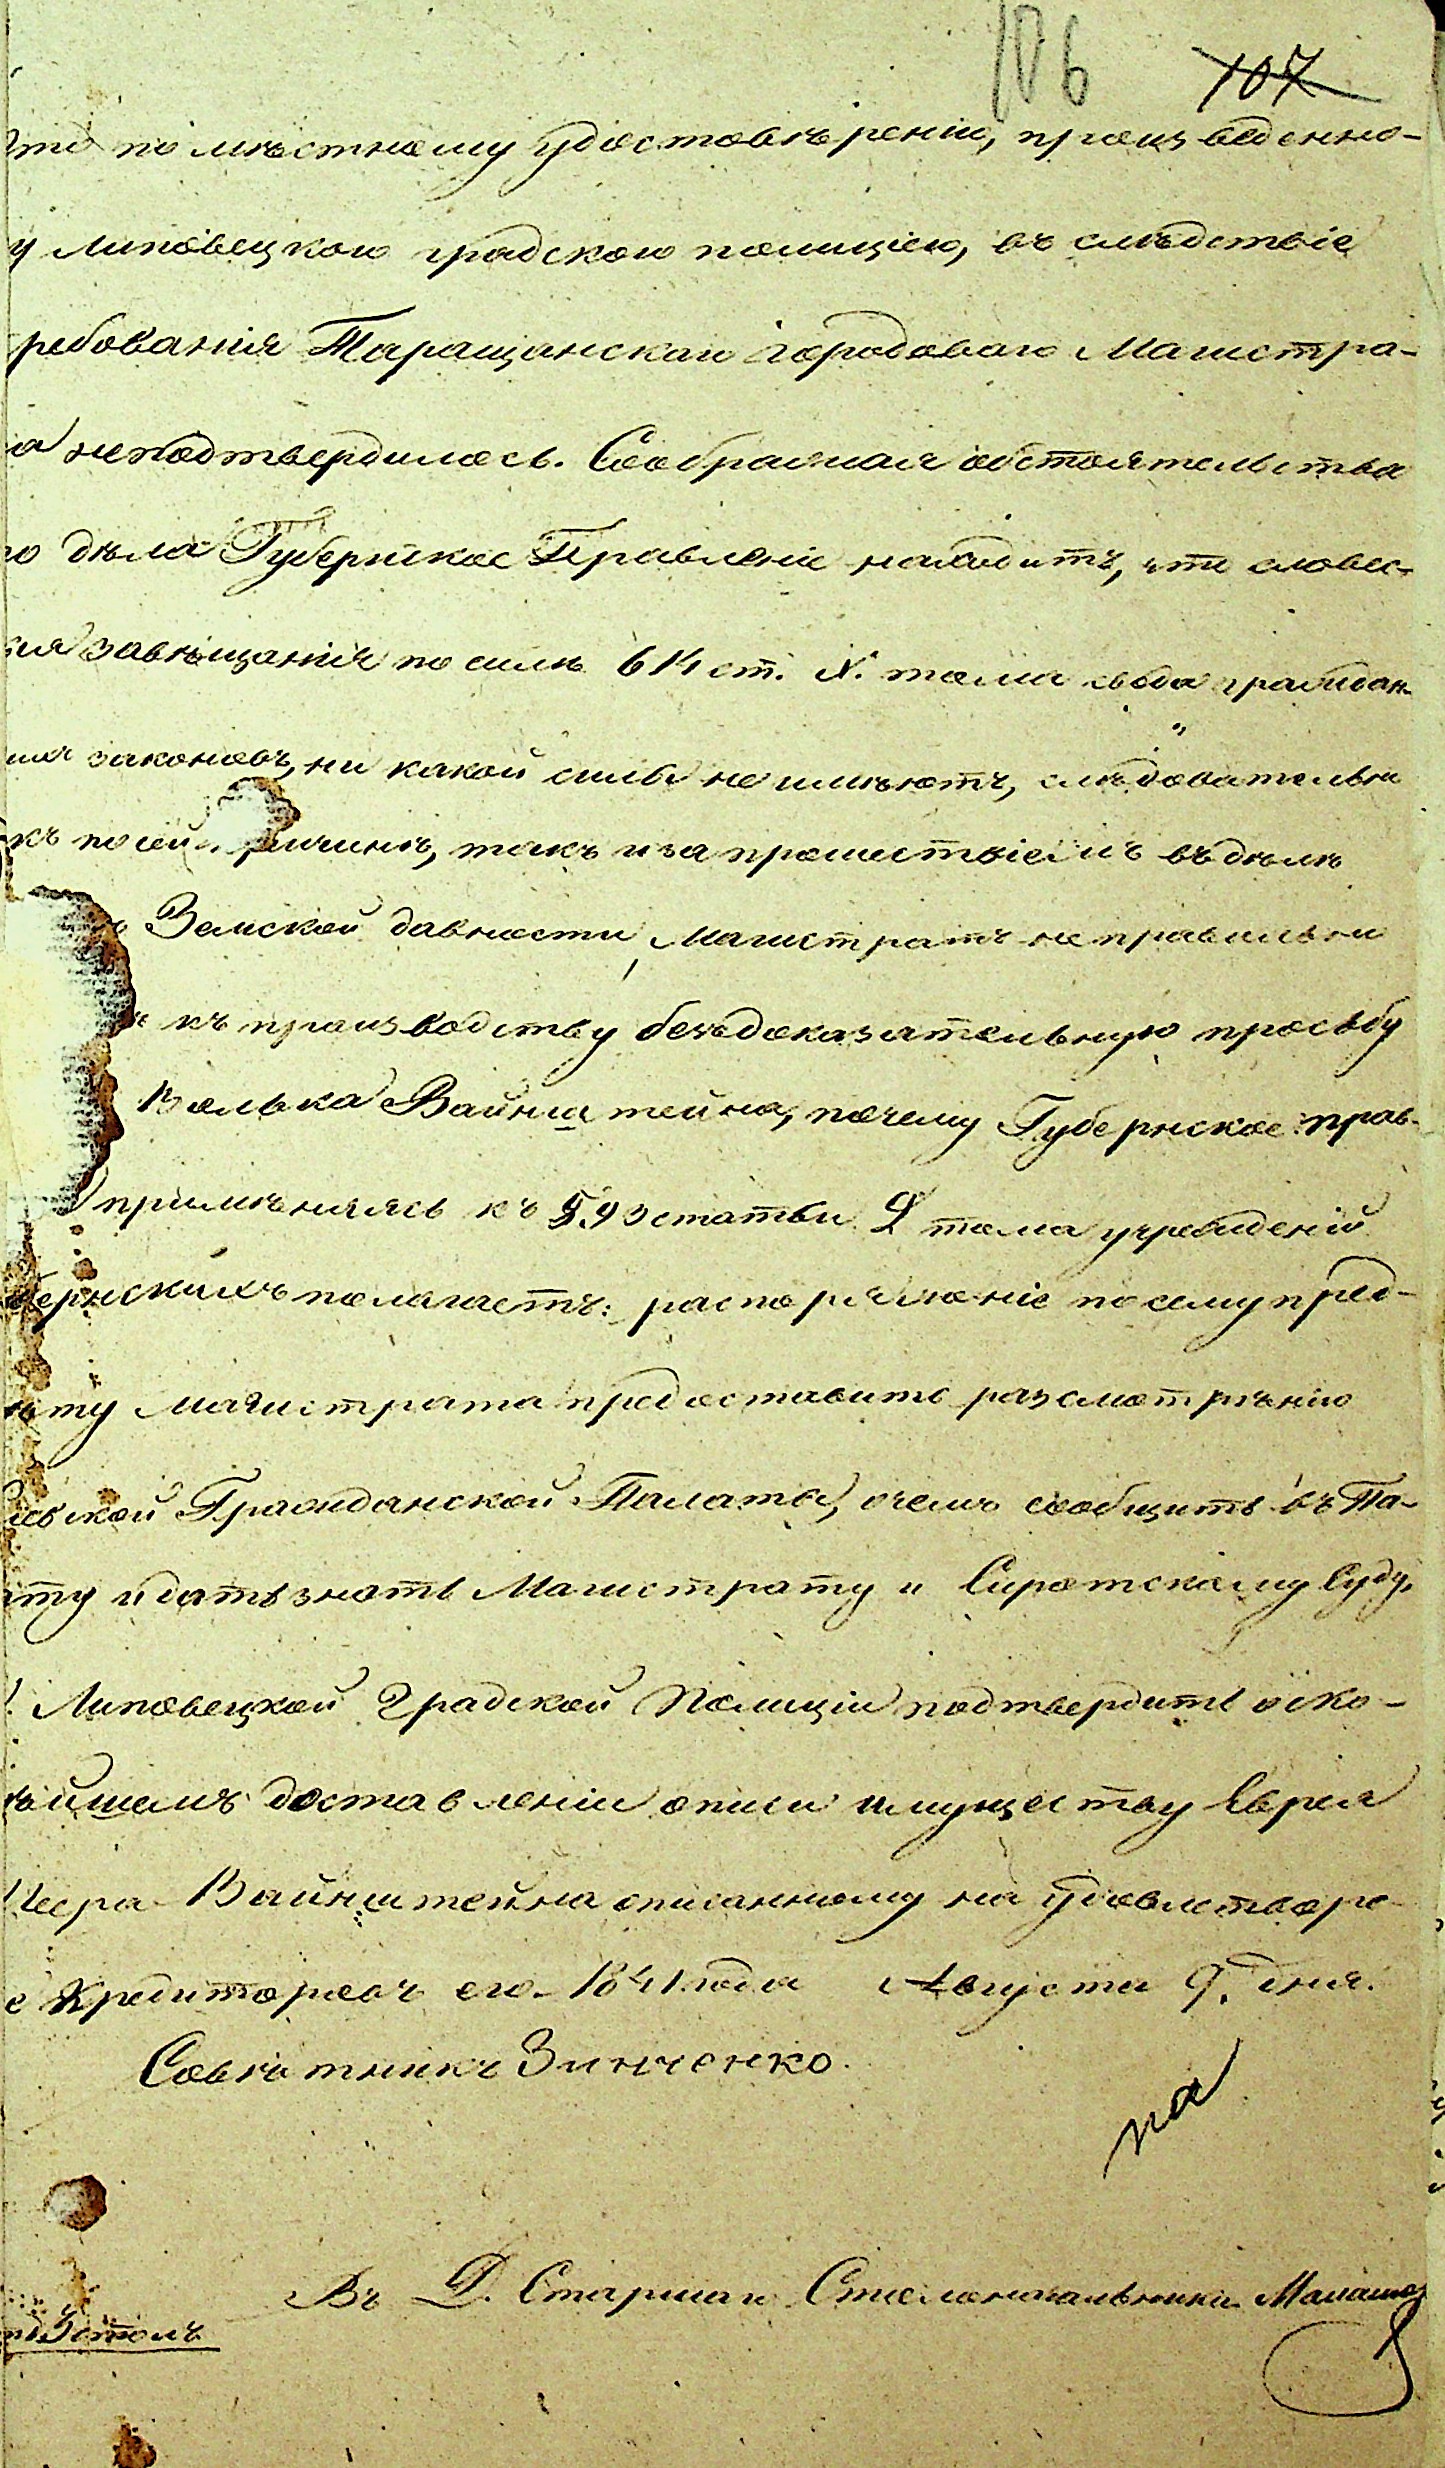 106 107
что по мѣстному удостовѣренію, произведенно-
у Липовецкою градскою полиціею, въ слѣдствіе
ребованія Таращанскаго городоваго Магистра-
а неподтвердилось. Соображая обстоятельства
го дѣла Губернское Правленіе находитъ, что словес-
ыя завѣщанія по силѣ 614 ст. X. тома свода граждан-
ихъ законовъ, ни какой силы не имѣютъ, слѣдовательно
къ по сей причинѣ, такъ и за прошествіемъ въ дѣлѣ
ъ Земской давности, Магистратъ неправильно
ъ къ производству бездоказательную просьбу
Волька Вайнштейна, почему Губернское прав-
примѣняясь къ 593 статьи 2 тома учрежденій
бернскихъ полагаетъ: распоряженіе по сему пред-
мѣту Магистрата предоставить разсмотрѣнію
іевской Гражданской Палаты, о чемъ сообщить въ Па-
ату и дать знать Магистрату и Сиротскому Суду,
Липовецкой Градской Полиціи подтвердить о ско-
рѣйшемъ доставленіи описи имуществу Еврея
Вайнштейна описанному на удовлетворе-
е Кредиторовъ его. 1841 года Августа 9. дня.
Совѣтникъ Зинченко.
Въ Д. Старшаго Столоначальника
столъ